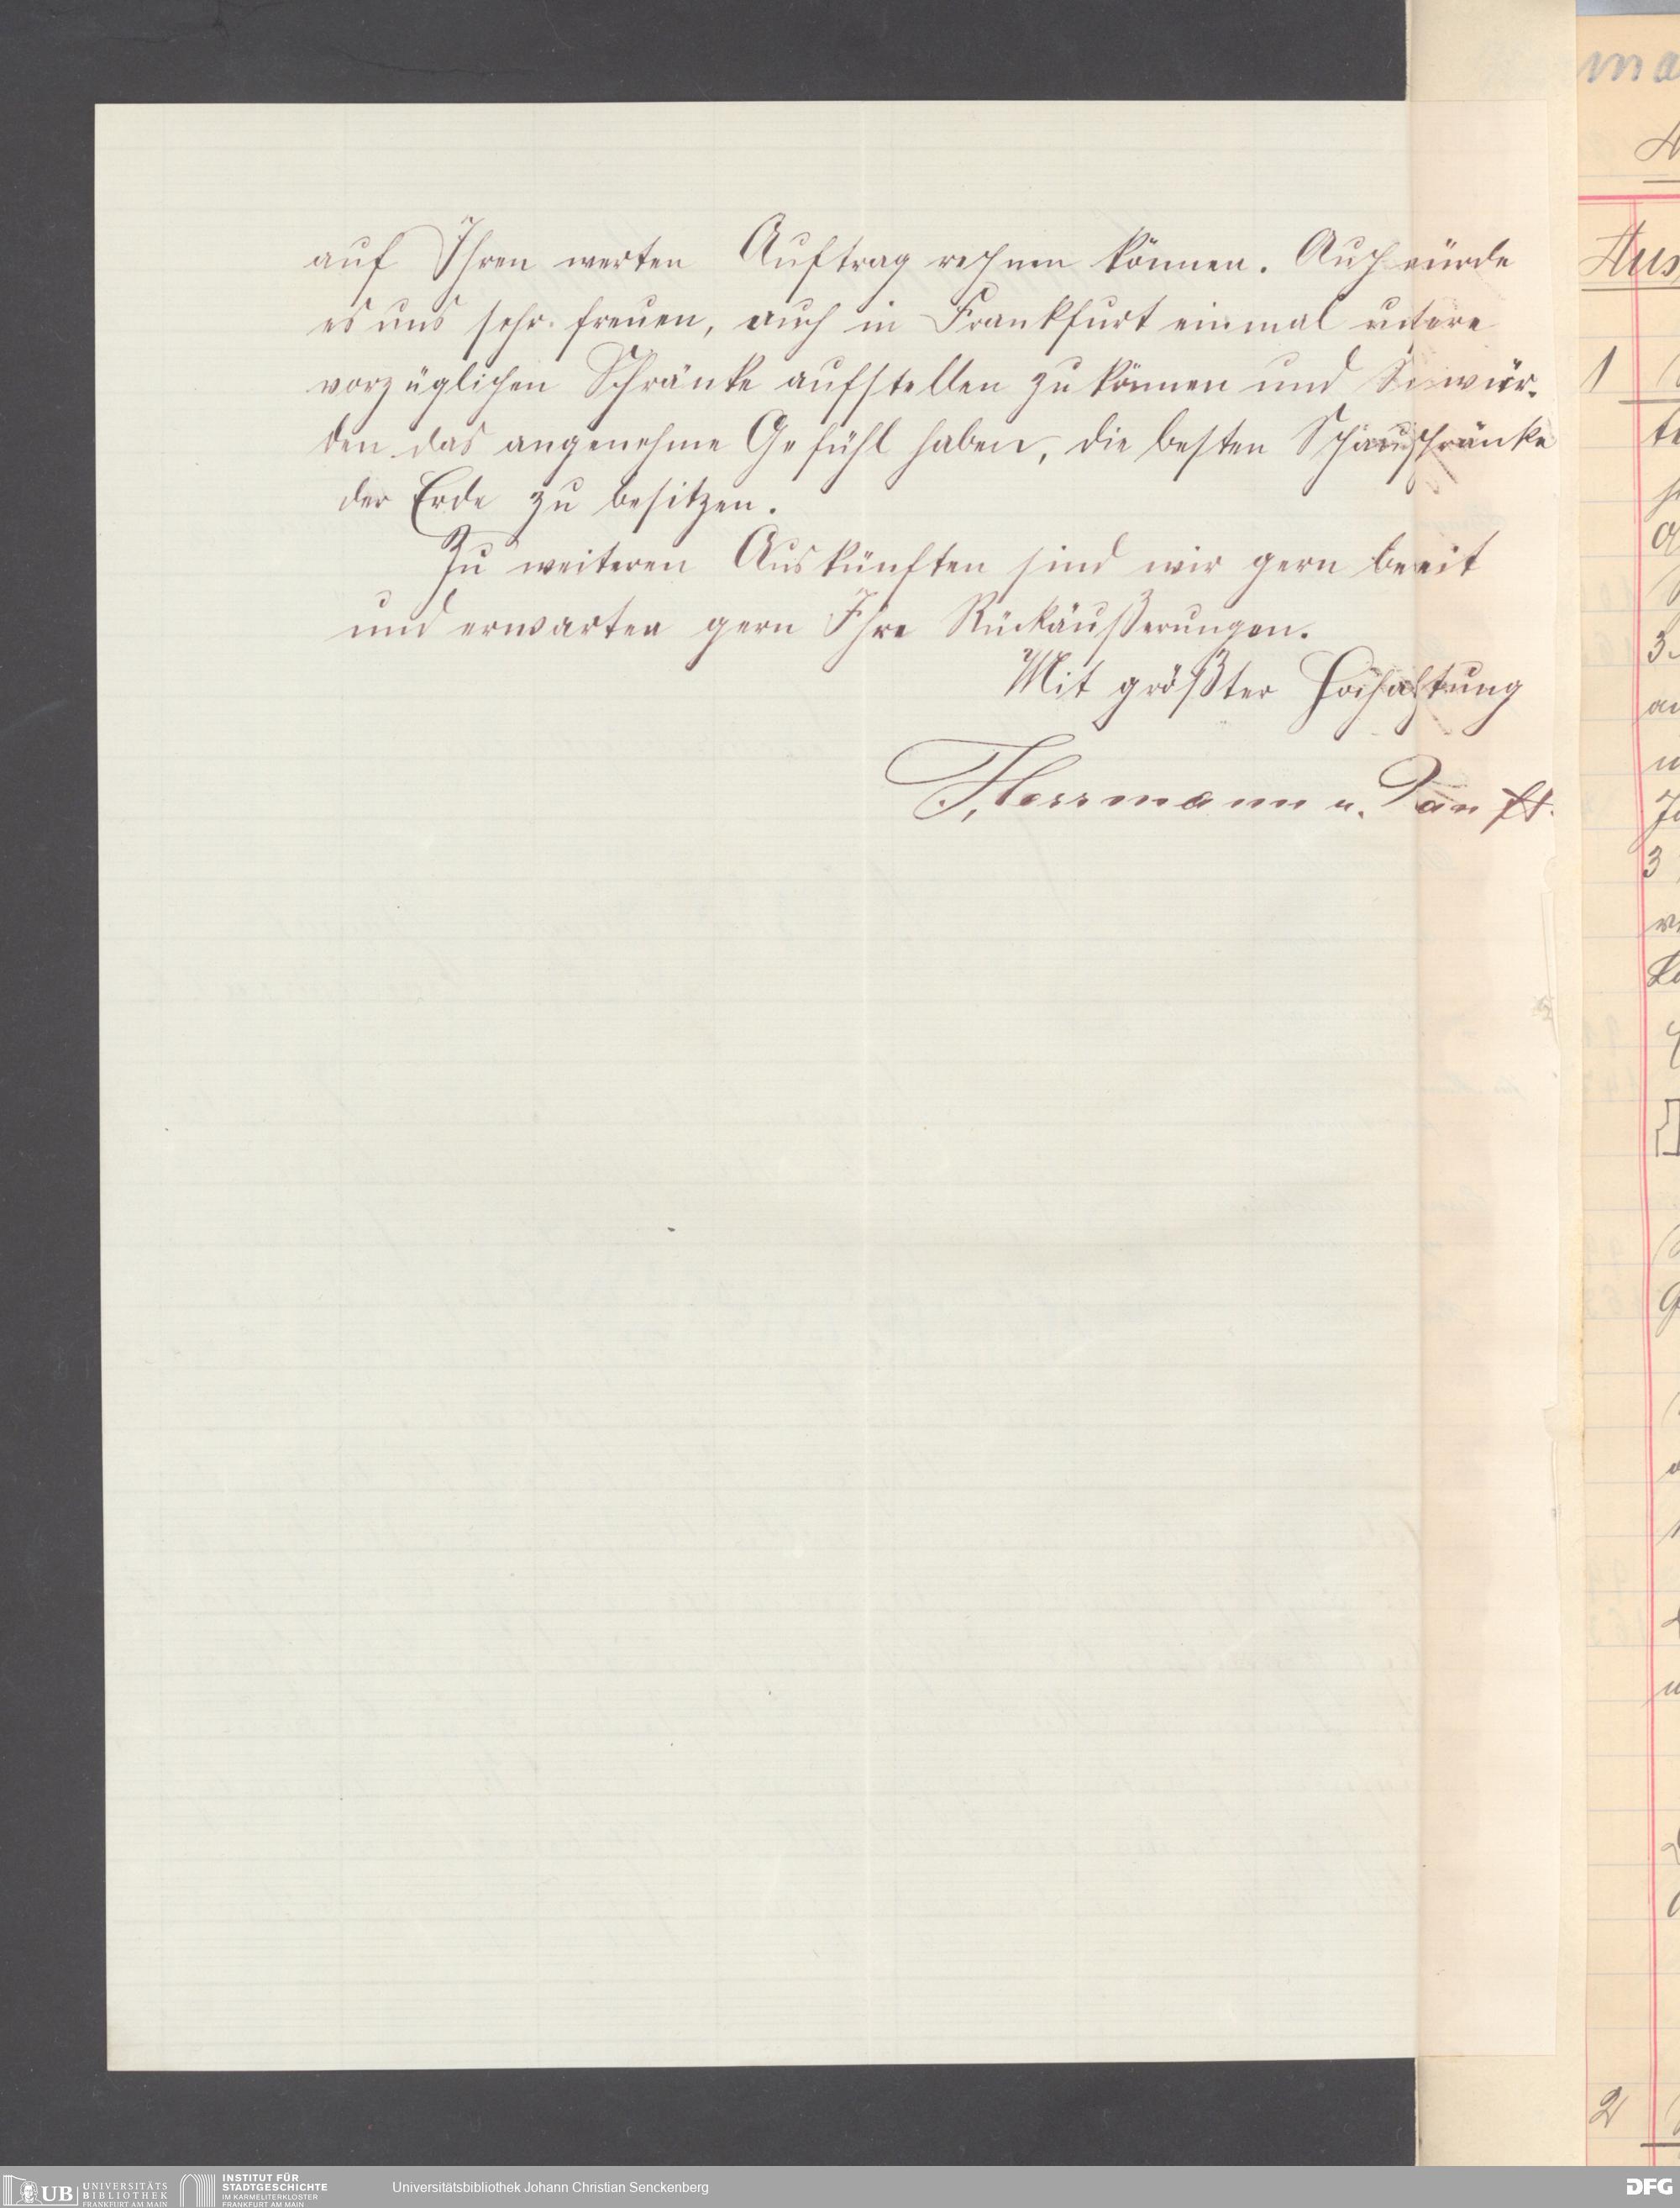 auf Ihren werten Auftrag rechnen können. Auch würde
es uns sehr freuen, auch in Frankfurt einmal unsere
vorzüglichen Schränke aufstellen zu können und Sie wür-
den das angenehme Gefühl haben, die besten Schauschränke
der Erde zu besitzen.
Zu weiteren Auskünften sind wir gern bereit
und erwarten gern Ihre Rückäußerungen.
Mit größter Hochachtung
Herrmann u.
ma
Aus
1
3
3
2
UB UNIVERSITÄTS
BIBLIOTHEK
FRANKFURT AM MAIN
INSTITUT FÜR
STADTGESCHICHTE
IM KARMELITERKLOSTER
FRANKFURT AM MAIN
Universitätsbibliothek Johann Christian Senckenberg
DFG